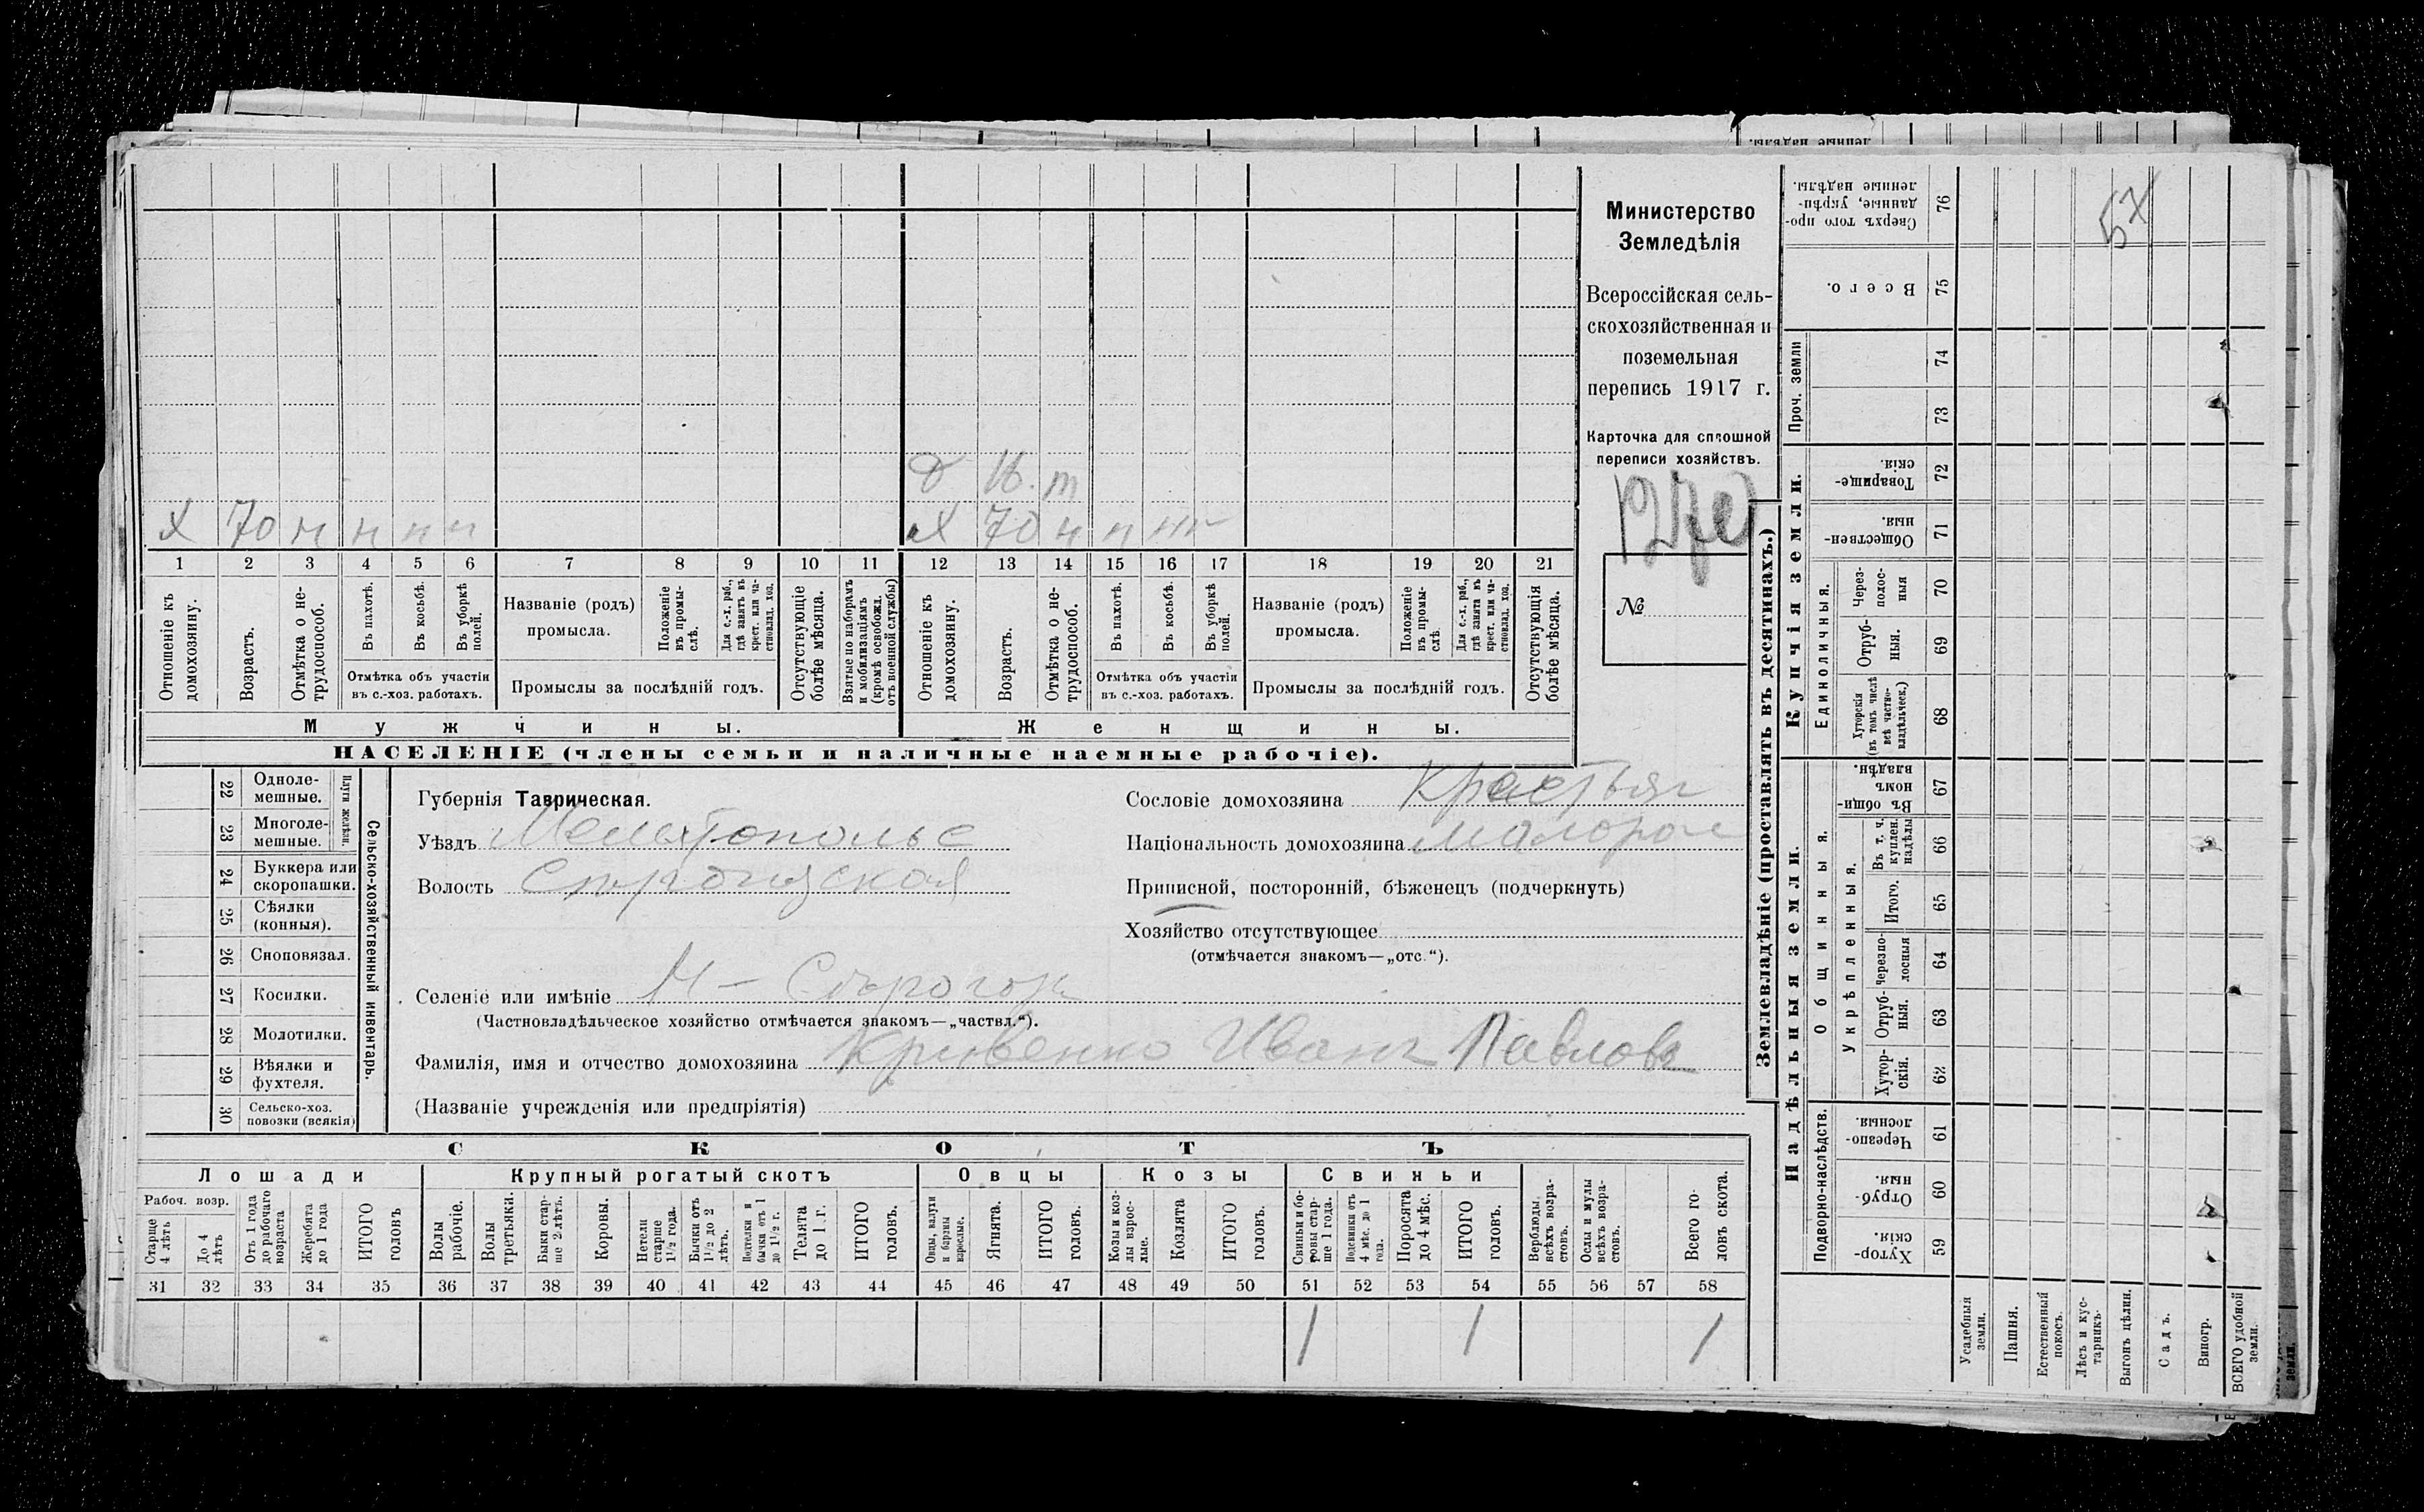 Министерство
Земледѣлія
Всероссійская сель-
скохозяйственная и
поземельная
перепись 1917 г.
Карточка для сплошной
переписи хозяйствъ.
№
д 16. т
х 70 н н н н
х 70 н н н н
1 2 3 4 5 6 7 8 9 10 11 12 13 14 15 16 17 18 19 20 21
Отношеніе къ домохозяину.
Возрастъ.
Отмѣтка о не-трудоспособ.
Въ пахотѣ.
Въ косьбѣ.
Въ уборкѣ полей.
Отмѣтка объ участіи
въ с.-хоз. работахъ.
Названіе (родъ)
промысла.
Положеніе въ промы-слѣ.
Для с.-х. раб., гдѣ занятъ въ крест. или ча-стновлад. хоз.
Промыслы за послѣдній годъ.
Отсутствующіе болѣе мѣсяца.
Взятые по наборамъ и мобилизаціямъ (кромѣ освобожд. отъ военной службы)
Отношеніе къ домохозяину.
Возрастъ.
Отмѣтка о не-трудоспособ.
Въ пахотѣ.
Въ косьбѣ.
Въ уборкѣ полей.
Отмѣтка объ участіи
въ с.-хоз. работахъ.
Названіе (родъ)
промысла.
Положеніе въ промы-слѣ.
Для с.-х. раб., гдѣ занята въ крест. или ча-стновлад. хоз.
Промыслы за послѣдній годъ.
Отсутствующія болѣе мѣсяца.
Мужчины.
Женщины.
НАСЕЛЕНІЕ (члены семьи и наличные наемные рабочіе).
22 Одноле-мешные.
23 Многоле-мешные.
Плуги желѣзн.
24 Буккера или скоропашки.
25 Сѣялки (конныя).
26 Сноповязал.
27 Косилки.
28 Молотилки.
29 Вѣялки и фухтеля.
30 Сельско-хоз. повозки (всякія)
Сельско-хозяйственный инвентарь.
Губернія Таврическая.
Уѣздъ Мелитопольс
Волость
Селеніе или имѣніе
(Частновладѣльческое хозяйство отмѣчается знакомъ—„частвл.“).
Фамилія, имя и отчество домохозяина Кривенко Иванъ Павловъ
(Названіе учрежденія или предпріятія)
Сословіе домохозяина Крестьян
Національность домохозяина Малорос
Приписной, посторонній, бѣженецъ (подчеркнуть)
Хозяйство отсутствующее
(отмѣчается знакомъ—„отс.“).
СКОТЪ
Лошади
Крупный рогатый скотъ
Овцы
Козы
Свиньи
Рабоч. возр.
Старше 4 лѣтъ
До 4 лѣтъ
Отъ 1 года до рабочаго возраста
Жеребята до 1 года
ИТОГО головъ
Волы рабочіе.
Волы третьяки.
Быки стар-ше 2 лѣтъ.
Коровы.
Нетели старше 1½ года.
Бычки отъ 1½ до 2 лѣтъ.
Подтелки и бычки отъ 1 до 1½ г.
Телята до 1 г.
ИТОГО головъ.
Овцы, валухи и бараны взрослые.
Ягнята.
ИТОГО головъ.
Козы и коз-лы взрос-лые.
Козлята
ИТОГО головъ.
Свиньи и бо-ровы стар-ше 1 года.
Подсвинки отъ 4 мѣс. до 1 года.
Поросята до 4 мѣс.
ИТОГО головъ.
Верблюды всѣхъ возра-стовъ.
Ослы и мулы всѣхъ возра-стовъ.
Всего го-ловъ скота.
31 32 33 34 35 36 37 38 39 40 41 42 43 44 45 46 47 48 49 50 51 52 53 54 55 56 57 58
1 1 1
Землевладѣніе (проставлять въ десятинахъ.)
Надѣльныя земли.
Купчія земли.
Проч. земли
Подворно-наслѣдств.
Общинныя.
Укрѣпленныя.
Единоличныя.
Сверхъ того про-данные, укрѣп-ленные надѣлы. 76
Всего. 75
74
73
Товарище-скія. 72
Обществен-ныя. 71
Через-полос-ныя 70
Отруб-ныя. 69
Хуторскія (въ томъ числѣ всѣ частно-владѣльческ.) 68
Въ общи-номъ владѣн. 67
Въ т. ч. куплен. надѣлы 66
Итого. 65
Черезпо-лосныя 64
Отруб-ныя. 63
Хутор-скія. 62
Черезпо-лосныя 61
Отруб-ныя. 60
Хутор-скія. 59
Усадебныя земли.
Пашня.
Естественный покосъ.
Лѣсъ и кус-тарникъ.
Выгонъ цѣлин.
Садъ.
Виногр.
ВСЕГО удобной земли.